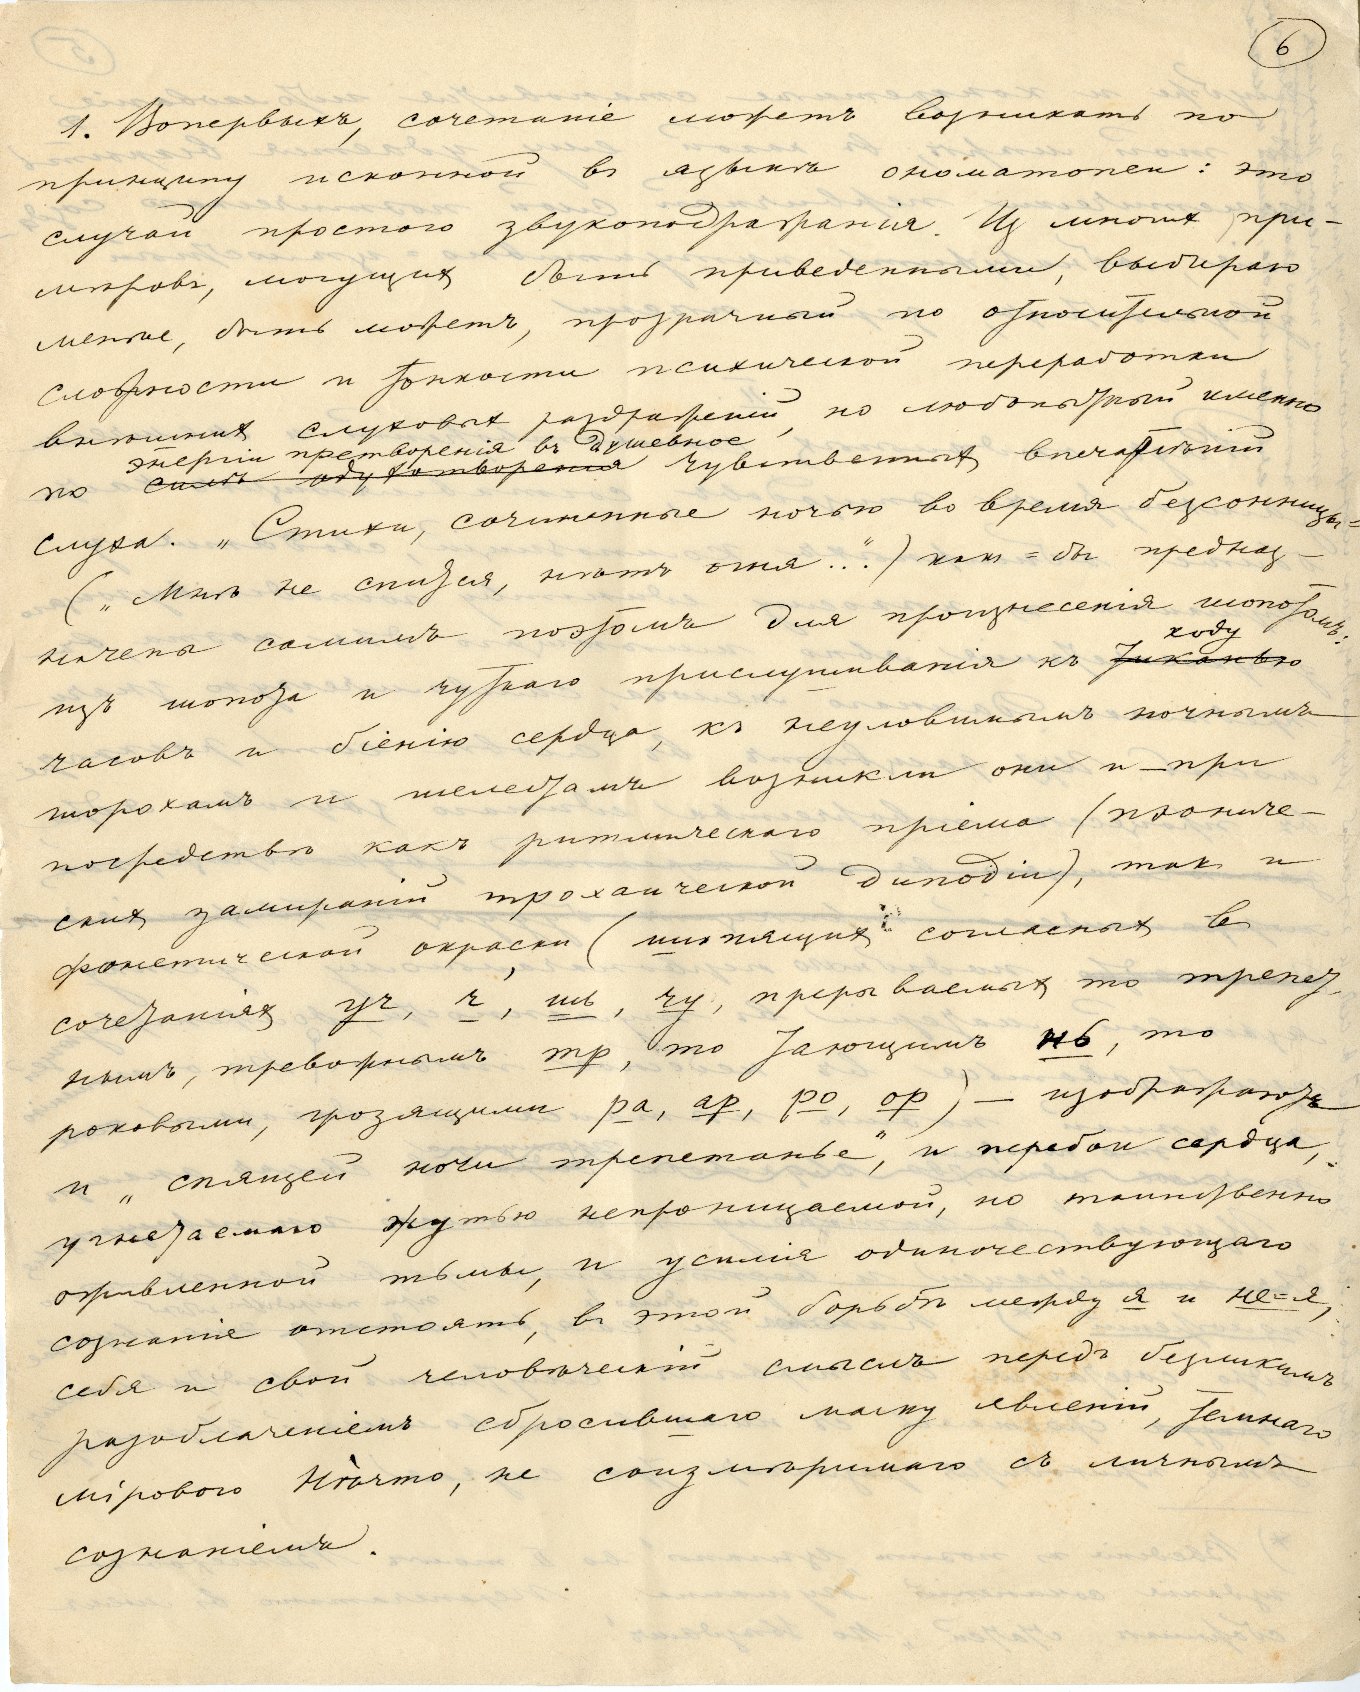 6
1. Вопервыхъ, сочетаніе можетъ возникать по
принципу исконной въ языкѣ ономатопеи: это
случай простого звукоподражанія. Из многих при-
мѣровъ, могущих быть приведенными, выбираю
менѣе, быть можетъ, прозрачный по относительной
сложности и тонкости психической переработки
внѣшних слуховых раздраженій, но любопытный именно
энергіи претворенія въ душевное
по силѣ одухотворенія чувственных впечатлѣній
слуха. „Стихи, сочиненные ночью во время безсонницы"
(„Мнѣ не спится, нѣтъ огня...") как=бы предназ-
начены самимъ поэтомъ для произнесенія шопотомъ:
ходу
изъ шопота и чуткаго прислушиванія къ тиканью
часовъ и біенію сердца, къ неуловимымъ ночнымъ
шорохамъ и шелестамъ возникли они и – при
посредствѣ какъ ритмическаго пріема (пэониче-
ских замираній трохаической диподіи), так и
фонетической окраски (шипящих согласных в
сочетаніях уч, ч, шь, чу, прерываемых то трепет-
нымъ, тревожнымъ тр, то тающимъ нь, то
роковыми, грозящими ра, ар, ро, ор) – изображаютъ
и „спящей ночи трепетанье", и перебои сердца,
угнетаемаго жутью непроницаемой, но таинственно
оживленной тьмы, и усилія одиночествующаго
сознанія отстоять, в этой борьбѣ между я и не=я,
себя и свой человѣческій смыслъ передъ безликимъ
разоблаченіемъ сбросившаго маску явленій, темнаго
мірового Нѣчто, не соизмѣримаго съ личнымъ
сознаніемъ.